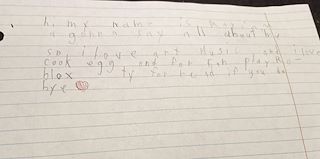 hi my name is
a gonna say all about my
so i love art Music and i love
cook egg and for fun play Ro-
blox ty for read if you do
bye